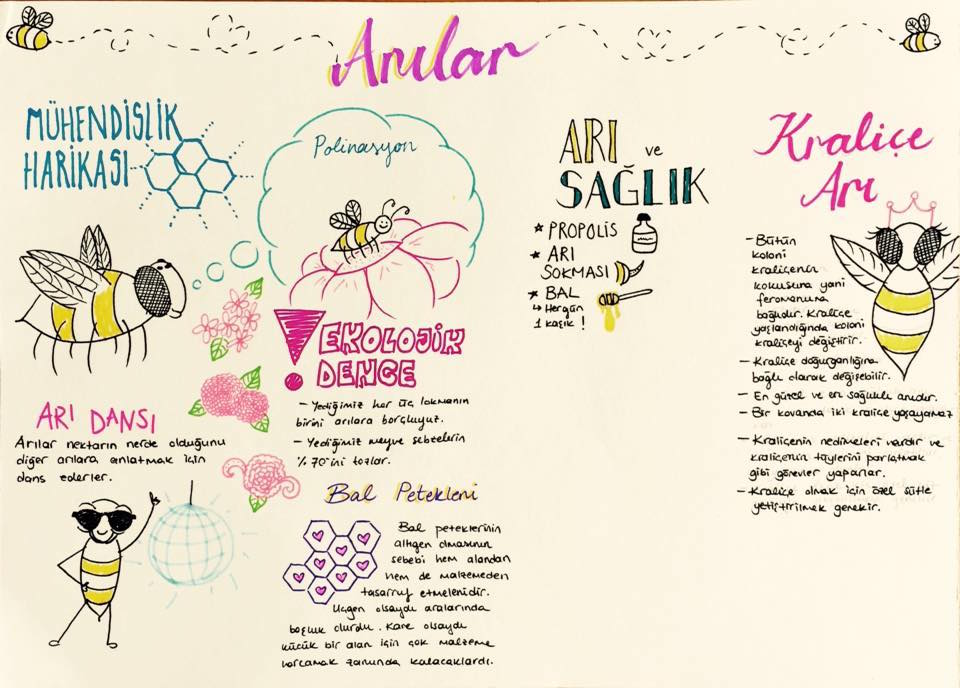 Arılar
MÜHENDİSLİK
HARİKASI
ARI DANSI
Arılar nektarın nerde olduğunu
diğer arılara anlatmak için
dans ederler.
Polinasyon
! EKOLOJİK
DENGE
- Yediğimiz her üç lokmanın
birini arılara borçluyuz.
- Yediğimiz meyve sebzelerin
% 70'ini tozlar.
Bal Petekleri
Bal peteklerinin
altıgen olmasının
sebebi hem alandan
hem de malzemeden
tasarruf etmeleridir.
Üçgen olsaydı aralarında
boşluk olurdu. Kare olsaydı
küçük bir alan için çok malzeme
harcamak zorunda kalacaklardı.
ARI ve
SAĞLIK
★ PROPOLİS
★ ARI
SOKMASI
★ BAL
↳ Hergün
1 kaşık !
Kraliçe
Arı
- Bütün
koloni
kraliçenin
kokusuna yani
feromonuna
bağlıdır. Kraliçe
yaşlandığında koloni
kraliçeyi değiştirir.
- Kraliçe doğurganlığına
bağlı olarak değişebilir.
- En güzel ve en sağlıklı arıdır.
- Bir kovanda iki kraliçe yaşayamaz
- Kraliçenin nedimeleri vardır ve
kraliçenin tüylerini parlatmak
gibi görevler yaparlar.
- Kraliçe olmak için özel sütle
yetiştirilmek gerekir.